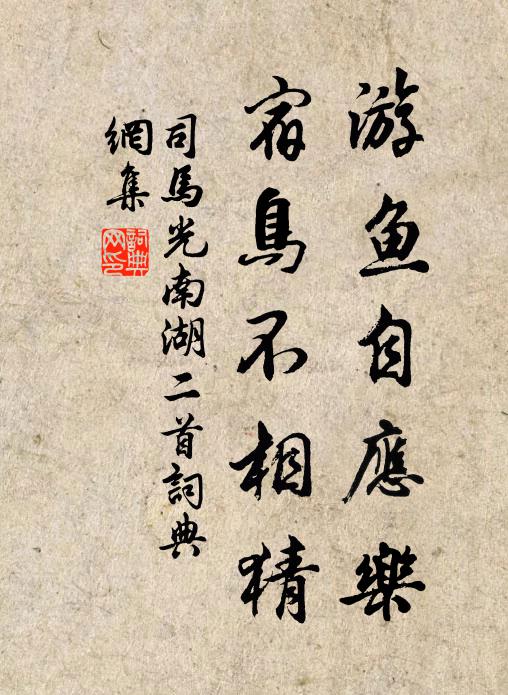 游鱼自應樂
宿鳥不相猜
司馬光南湖二首詞典
網集
詞典
网印